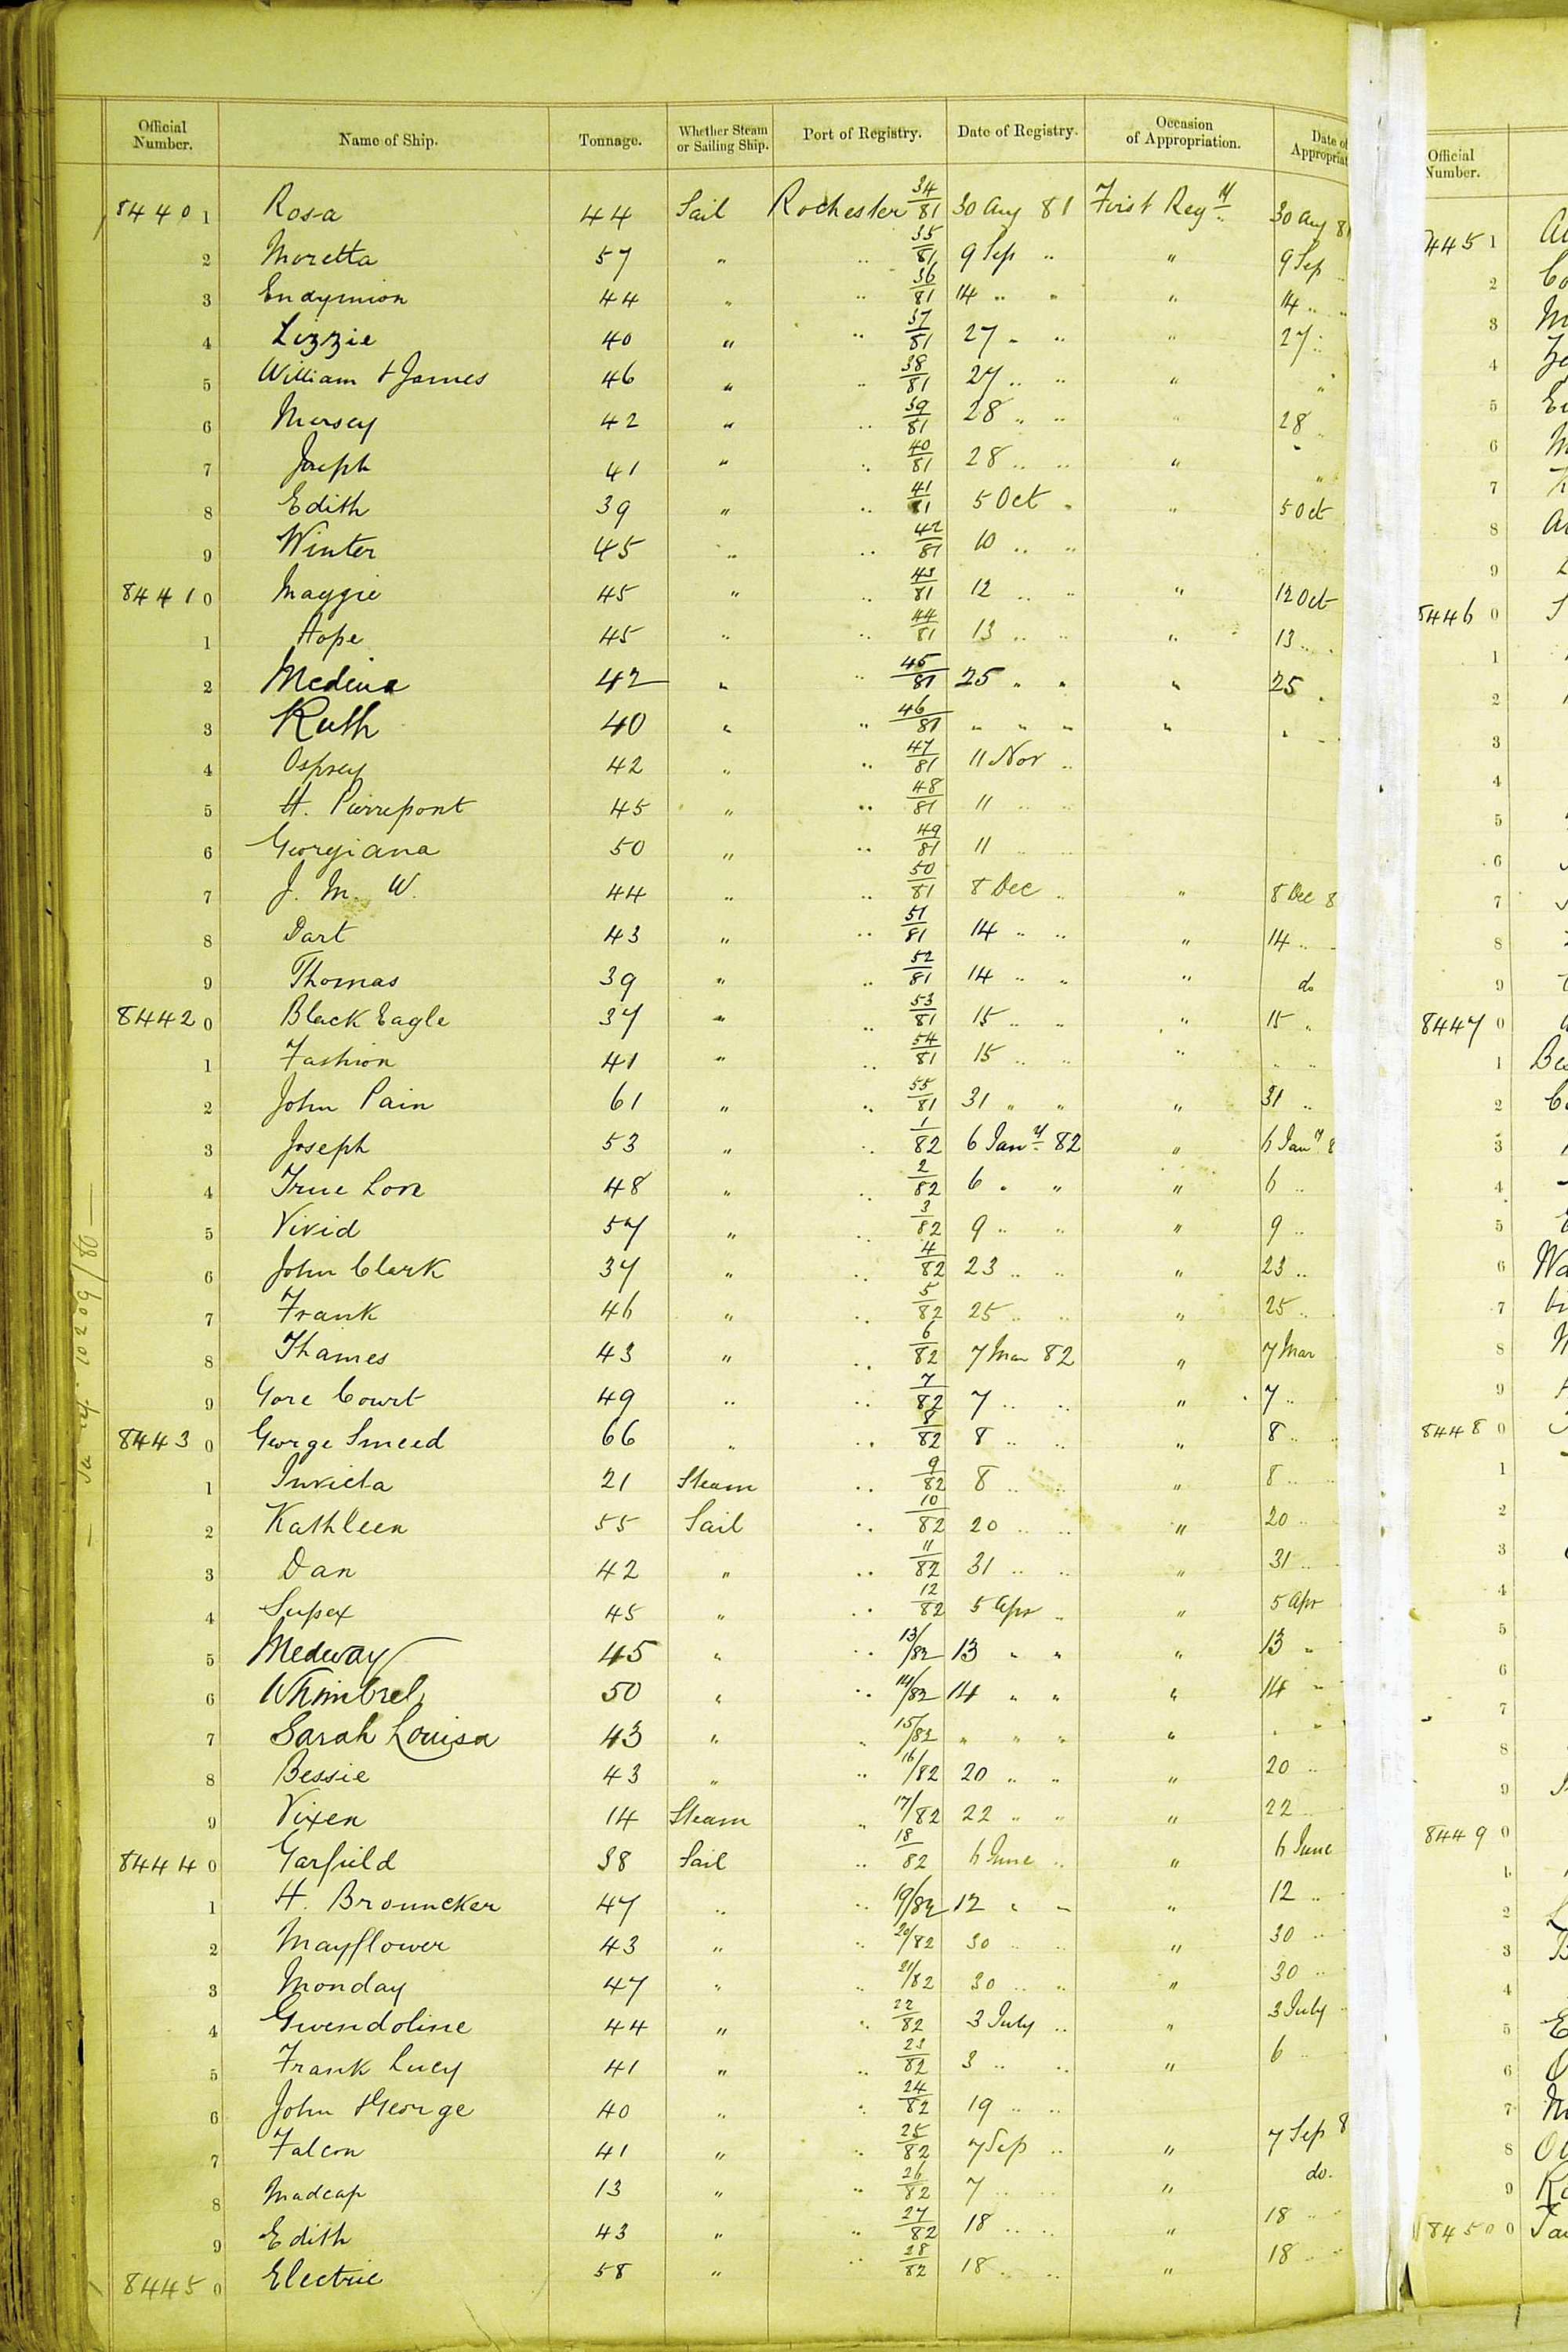 Official Number. Name of Ship. Tonnage. Whether Steam or Sailing Ship. Port of Registry. Date of Registry. Occasion of Appropriation. Date of Official Number.
8440 1 Rosa 44 Sail Rochester 34/81 30 Aug 81 First Regy 30 Aug 81
2 Moretta 57 " " 35/81 9 Sep " " 9 Sep "
3 Endymion 44 " " 36/81 14 " " " 14 " "
4 Lizzie 40 " " 37/81 27 " " " 27 "
5 William & James 46 " " 38/81 27 " " " "
6 Mersey 42 " " 39/81 28 " " " 28 "
7 Joseph 41 " " 40/81 28 " " " "
8 Edith 39 " " 41/81 5 Oct " " 5 Oct
9 Winter 45 " " 42/81 10 " "
8441 0 Maggie 45 " " 43/81 12 " " " 12 Oct
1 Hope 45 " " 44/81 13 " " " 13 "
2 Medina 42 " " 45/81 25 " " " 25 "
3 Ruth 40 " " 46/81 " " " " "
4 Osprey 42 " " 47/81 11 Nov "
5 H. Pierrepont 45 " " 48/81 11 " "
6 Georgiana 50 " " 49/81 11 " "
7 J. M. W. 44 " " 50/81 8 Dec " " 8 Dec 8
8 Dart 43 " " 51/81 14 " " " 14 "
9 Thomas 39 " " 52/81 14 " " " do
8442 0 Black Eagle 37 " " 53/81 15 " " " 15 "
1 Fashion 41 " " 54/81 15 " " " " "
2 John Pain 61 " " 55/81 31 " " " 31 "
3 Joseph 53 " " 1/82 6 Jany 82 " 6 Jany 8
4 True Love 48 " " 2/82 6 " " " 6 "
5 Vivid 57 " " 3/82 9 " " " 9 "
6 John Clark 37 " " 4/82 23 " " " 23 "
7 Frank 46 " " 5/82 25 " " " 25 "
8 Thames 43 " " 6/82 7 Mar 82 " 7 Mar
9 Gore Court 49 " " 7/82 7 " " " 7 "
8443 0 George Smeed 66 " " 8/82 8 " " " 8 "
1 Invicta 21 Steam " 9/82 8 " " 8 "
2 Kathleen 55 Sail " 10/82 20 " " " 20 "
3 Dan 42 " " 11/82 31 " " " 31 "
4 45 " " 12/82 5 Apr " " 5 Apr
5 Medway 45 " " 13/82 13 " " " 13 "
6 Whimbrel 50 " " 14/82 14 " " " 14 "
7 Sarah Louisa 43 " " 15/82 " " " " " "
8 Bessie 43 " " 16/82 20 " " " 20 "
9 Vixen 14 Steam " 17/82 22 " " " 22 "
8444 0 Garfield 38 Sail " 18/82 6 June " " 6 June
1 H. Brouncker 47 " " 19/82 12 " " " 12 "
2 Mayflower 43 " " 20/82 30 " " " 30 "
3 Monday 47 " " 21/82 30 " " " 30 "
4 Gwendoline 44 " " 22/82 3 July " " 3 July
5 Frank Lucy 41 " " 23/82 3 " " " 6 "
6 John & George 40 " " 24/82 19 " "
7 Falcon 41 " " 25/82 7 Sep " " 7 Sep 8
8 Madcap 13 " " 26/82 7 " " " do.
9 Edith 43 " " 27/82 18 " " " 18 "
8445 0 Electric 58 " " 28/82 18 " " " 18 "
10209/80
445 1
2
3
4
5
6
7
8
9
8446 0
1
2
3
4
5
6
7
8
9
8447 0
1
2
3
4
5
6
7
8
9
8448 0
1
2
3
4
5
6
7
8
9
8449 0
1
2
3
4
5
6
7
8
9
8450 0